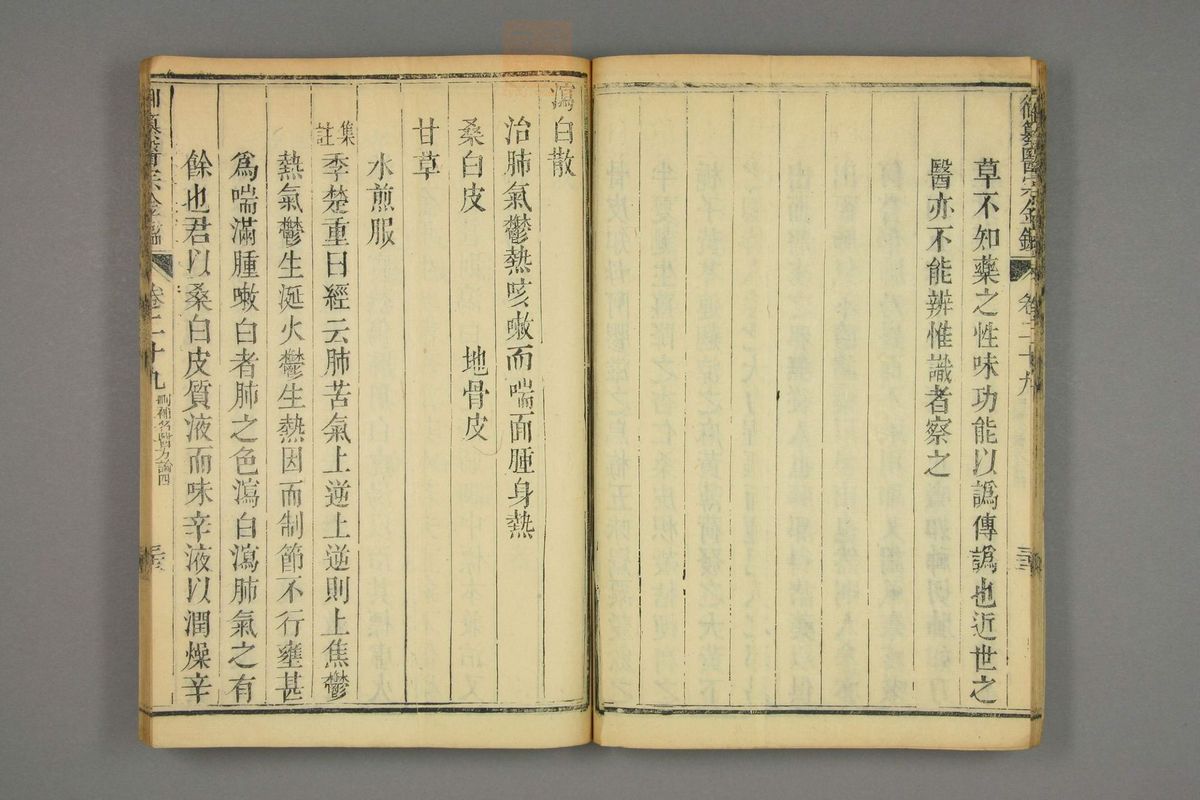 草不知藥之性味功能以譌傳譌也近世之
醫亦不能辨惟識者察之
瀉白散
治肺氣鬱熱咳嗽而喘面腫身熱
桑白皮 地骨皮
甘草
水煎服
集註 季楚重曰經云肺苦氣上逆上逆則上焦鬱
熱氣鬱生涎火鬱生熱因而制節不行壅甚
為喘滿腫嗽白者肺之色瀉白瀉肺氣之有
餘也君以桑白皮質液而味辛液以潤燥辛
醫宗金鑑 卷二十九 刪補名醫方論四